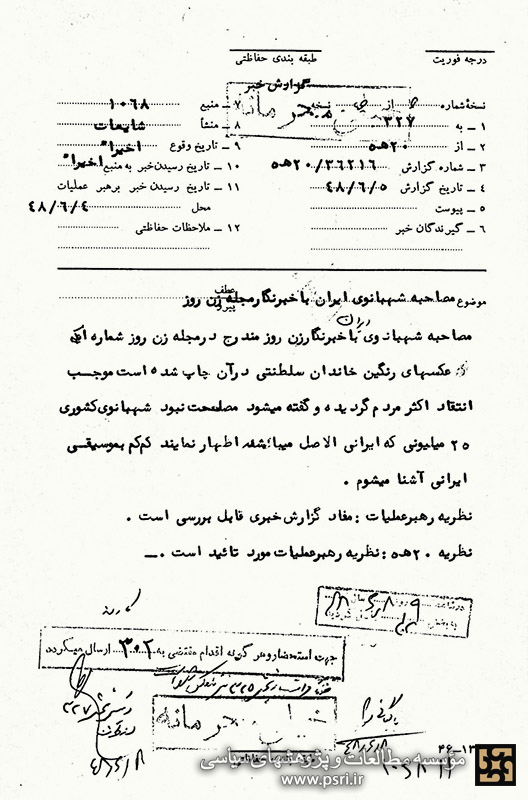 درجه فوریت
طبقه بندی حفاظتی
گزارش خبر
خیلی محرمانه
نسخهٔ شماره از نسخه
۱ ـ به ۳۲۷
۲ ـ از ۲۰ه‍۵
۳ ـ شماره گزارش ۲۰/۳۶۲۱۶ه‍۵
۴ ـ تاریخ گزارش ۴۸/۶/۵
۵ ـ پیوست
۶ ـ گیرندگان خبر
۷ ـ منبع ۱۰۶۸
۸ ـ منشأ شایعات
۹ ـ تاریخ وقوع اخیرا"
۱۰ ـ تاریخ رسیدن خبر به منبع اخیرا"
۱۱ ـ تاریخ رسیدن خبر برهبر عملیات
محل ۴۸/۶/۴
۱۲ ـ ملاحظات حفاظتی
موضوع مصاحبه شهبانوی ایران با خبرنگار مجله زن روز
عطف
پیرو
مصاحبه شهبانوی ایران با خبرنگار زن روز مندرج در مجله زن روز شماره ایکه
عکسهای رنگین خاندان سلطنتی در آن چاپ شده است موجب
انتقاد اکثر مردم گردیده و گفته میشود مصلحت نبود شهبانوی کشوری
۲۵ میلیونی که ایرانی الاصل میباشد اظهار نمایند کم کم بموسیقی
ایرانی آشنا میشوم .
نظریه رهبرعملیات : مفاد گزارش خبری قابل بررسی است .
نظریه ۲۰ه‍۵ : نظریه رهبرعملیات مورد تائید است . ــ
جهت استحضار و هر گونه اقدام مقتضی به ۳۰۲ ارسال میگردد
خیلی محرمانه
۴۸/۶/۸
۴۸/۶/۸
۱۳ـ۴۶
مؤسسه مطالعات و پژوهشهای سیاسی
www.psri.ir